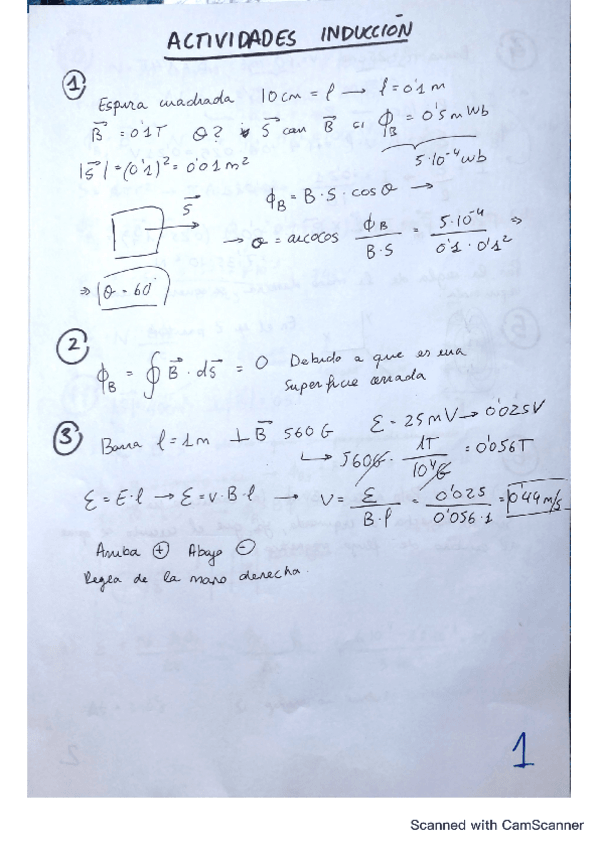 ACTIVIDADES INDUCCIÓN
① Espira cuadrada 10cm = l → l = 0'1 m
B⃗ = 0'1T θ? S⃗ con B⃗ si ϕ_B = 0'5 mWb
5·10⁻⁴ wb
|S⃗| = (0'1)² = 0'01 m²
ϕ_B = B·S·cos θ →
S⃗
→ θ = arcocos ϕ_B / B·S = 5·10⁻⁴ / 0'1 · 0'1² ⇒
⇒ θ = 60°
② ϕ_B = ∮ B⃗ · dS⃗ = 0 Debido a que es una
superficie cerrada
③ Barra l = 1m ⊥ B⃗ 560 G ℰ = 25 mV → 0'025V
↳ 560G · 1T / 10⁴G = 0'056T
ℰ = E·l → ℰ = v·B·l → V = ℰ / B·l = 0'025 / 0'056·1 = 0'44 m/s
Arriba ⊕ Abajo ⊖
Regla de la mano derecha.
1
Scanned with CamScanner